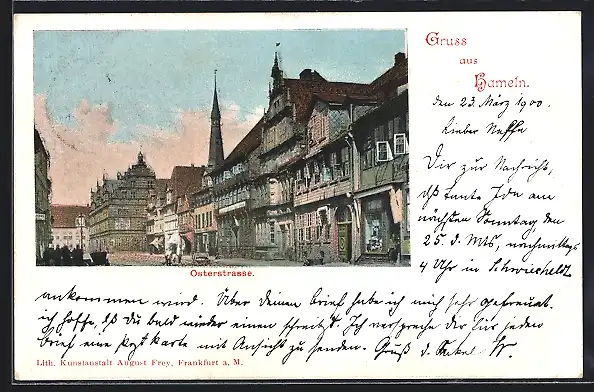 Gruss
aus
Hameln.
den 23. März 1900.
Lieber Neffe
Dir zur Nachricht,
daß Tante Ida am
nächsten Sonntag den
25. d. Mts, nachmittags
4 Uhr in
Osterstrasse.
ankommen wird. Über deinen Brief habe ich mich sehr gefreuat.
ich hoffe, daß du bald wieder einen schreibst. Ich verspreche dir für jeden
Brief eine Postkarte mit Ansicht zu senden. Gruß d. Onkel
Lith. Kunstanstalt August Frey, Frankfurt a. M.